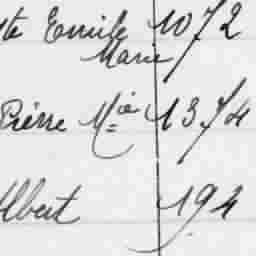 te Emile 1072
Marie
Pierre Mie 1374
Albert 194